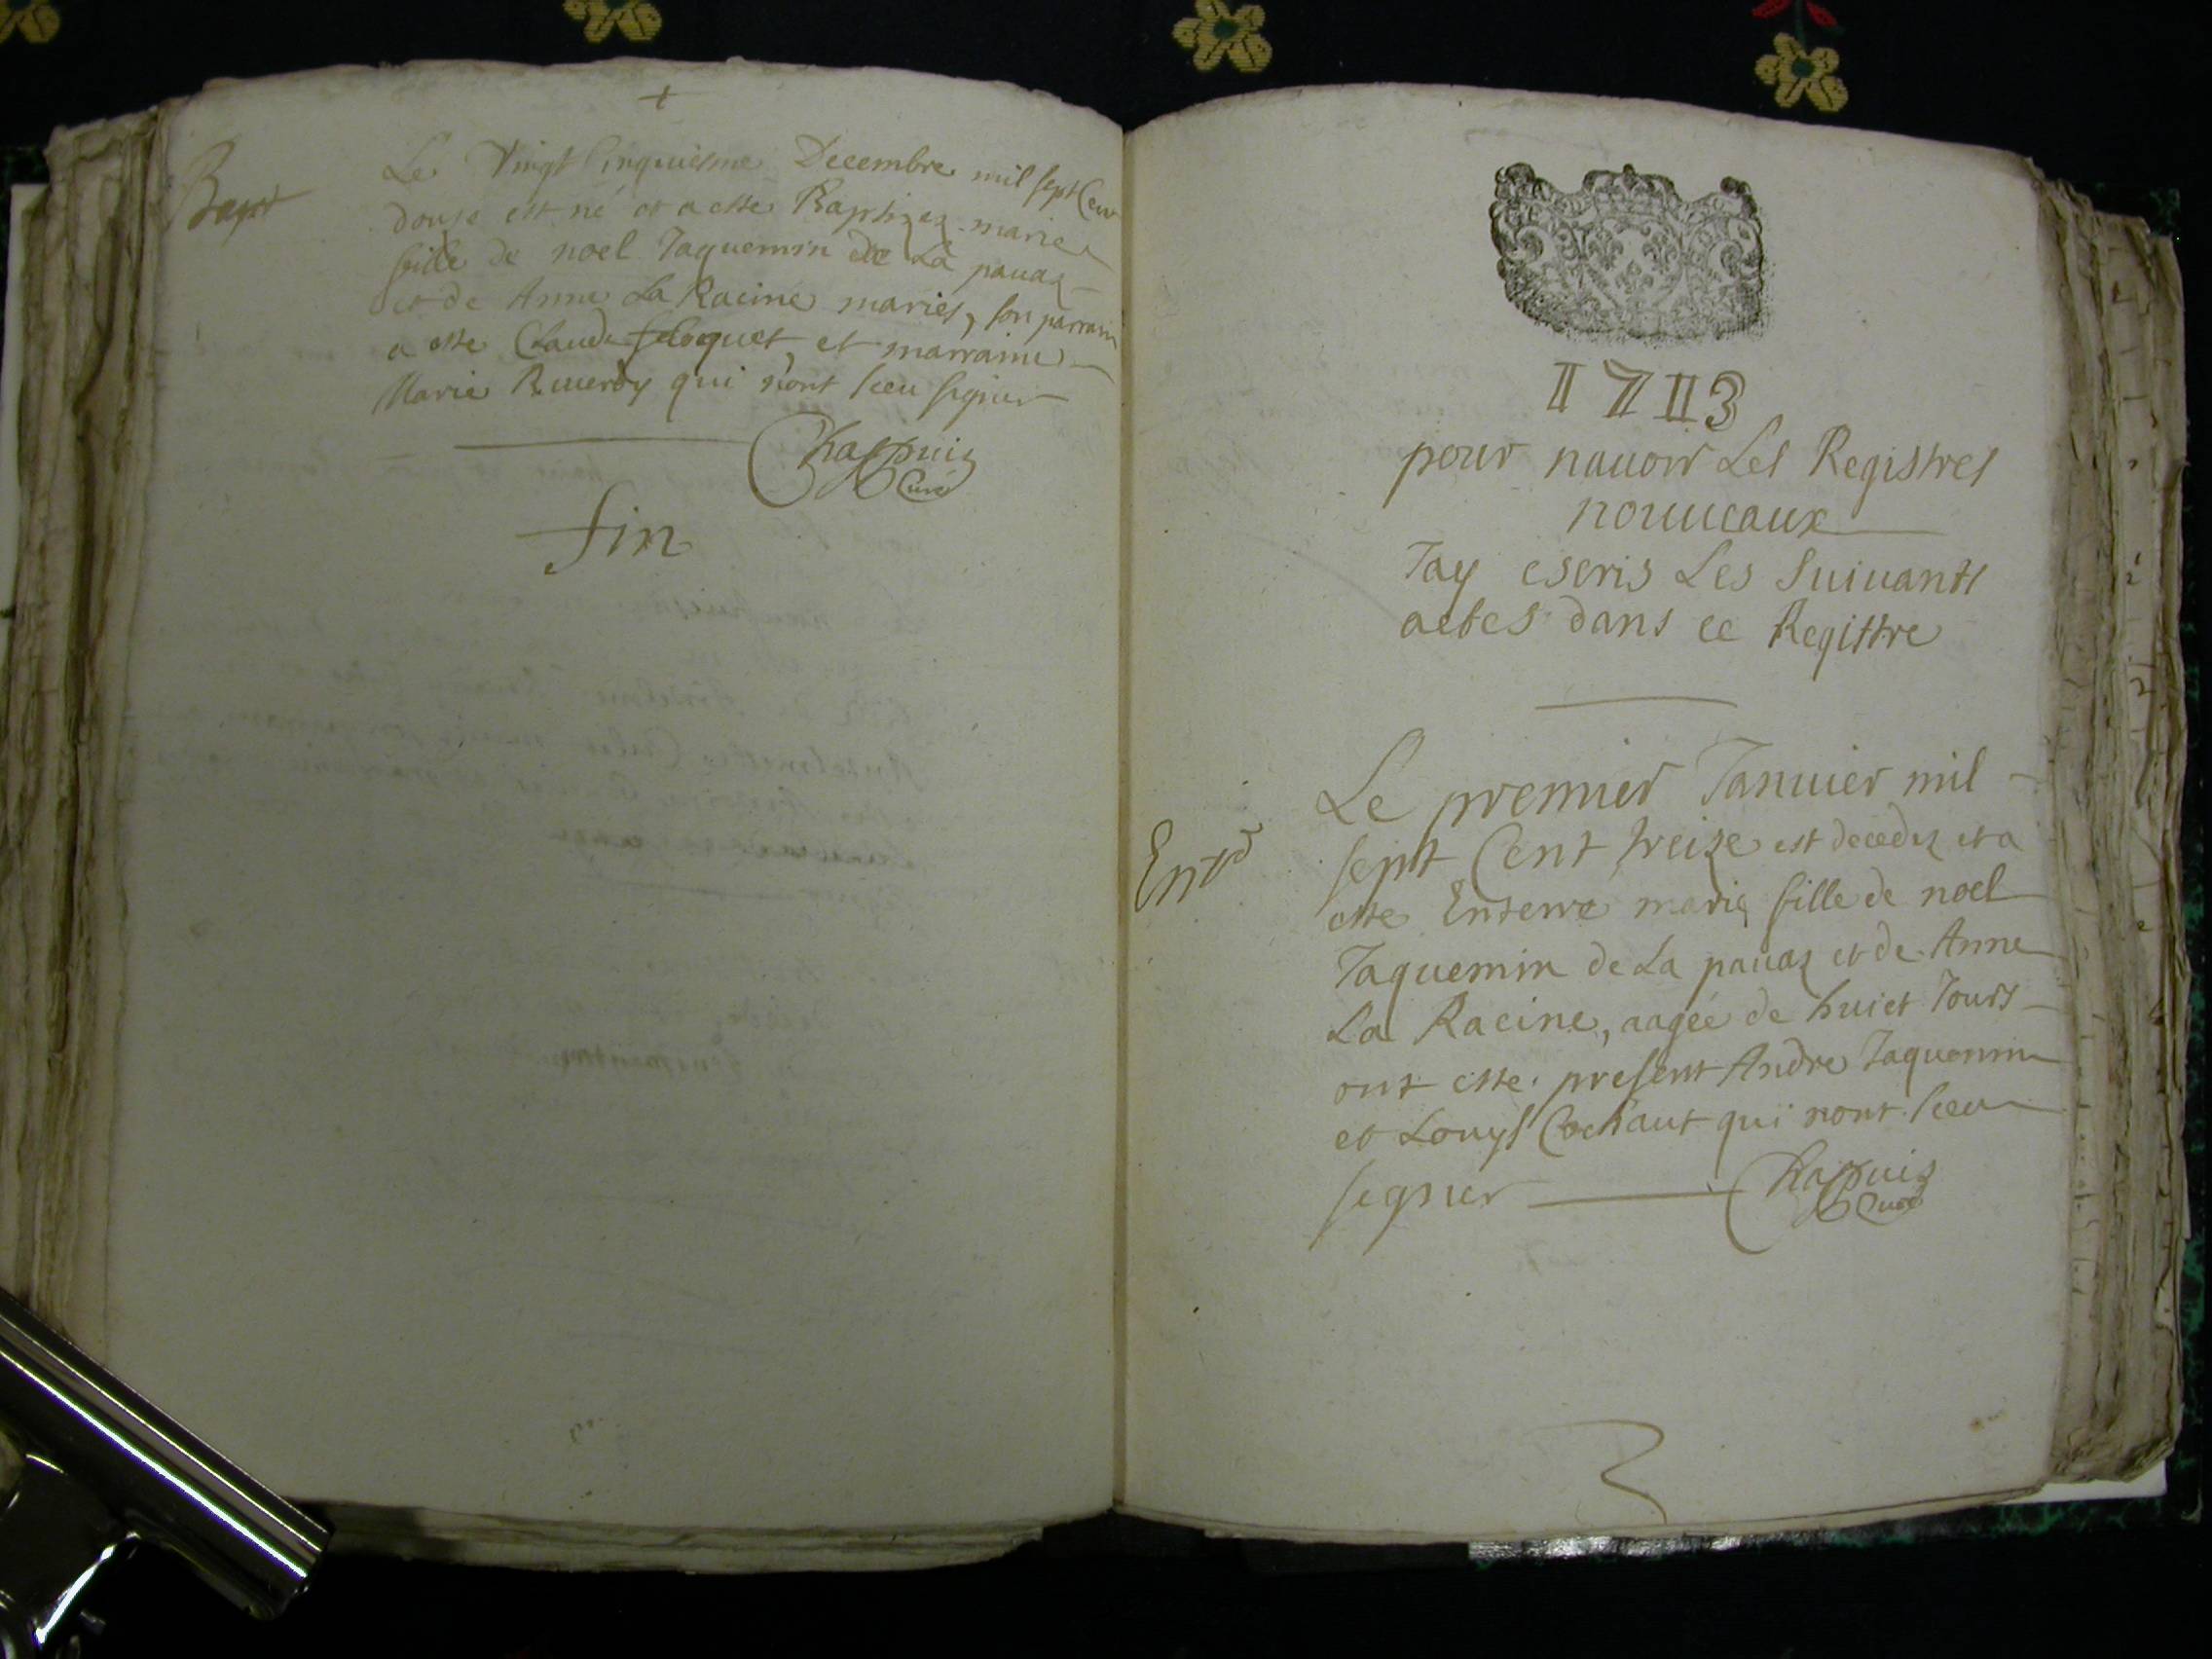 +
Bapt
Le Vingt Cinquiesme Decembre mil sept Cent
douze est né et a este Baptizez marie
fille de noel Jaquemin de La pauaz
et de Anne La Racine mariez, son parrain
a este Claude et marraine
Marie qui nont sceu signer
Chappuiz
Curé
fin
1713
pour nauoir Les Registres
nouueaux
Jay escris Les Suiuants
actes dans ce Registre
Ent
Le premier Januier mil
sept Cent treize est decedez et a
este Enterre marie fille de noel
Jaquemin de La pauaz et de Anne
La Racine, aagée de huict Jours
ont este present Andre Jaquemin
et Louys Cochaut qui nont sceu
segner
Chappuiz
Curé